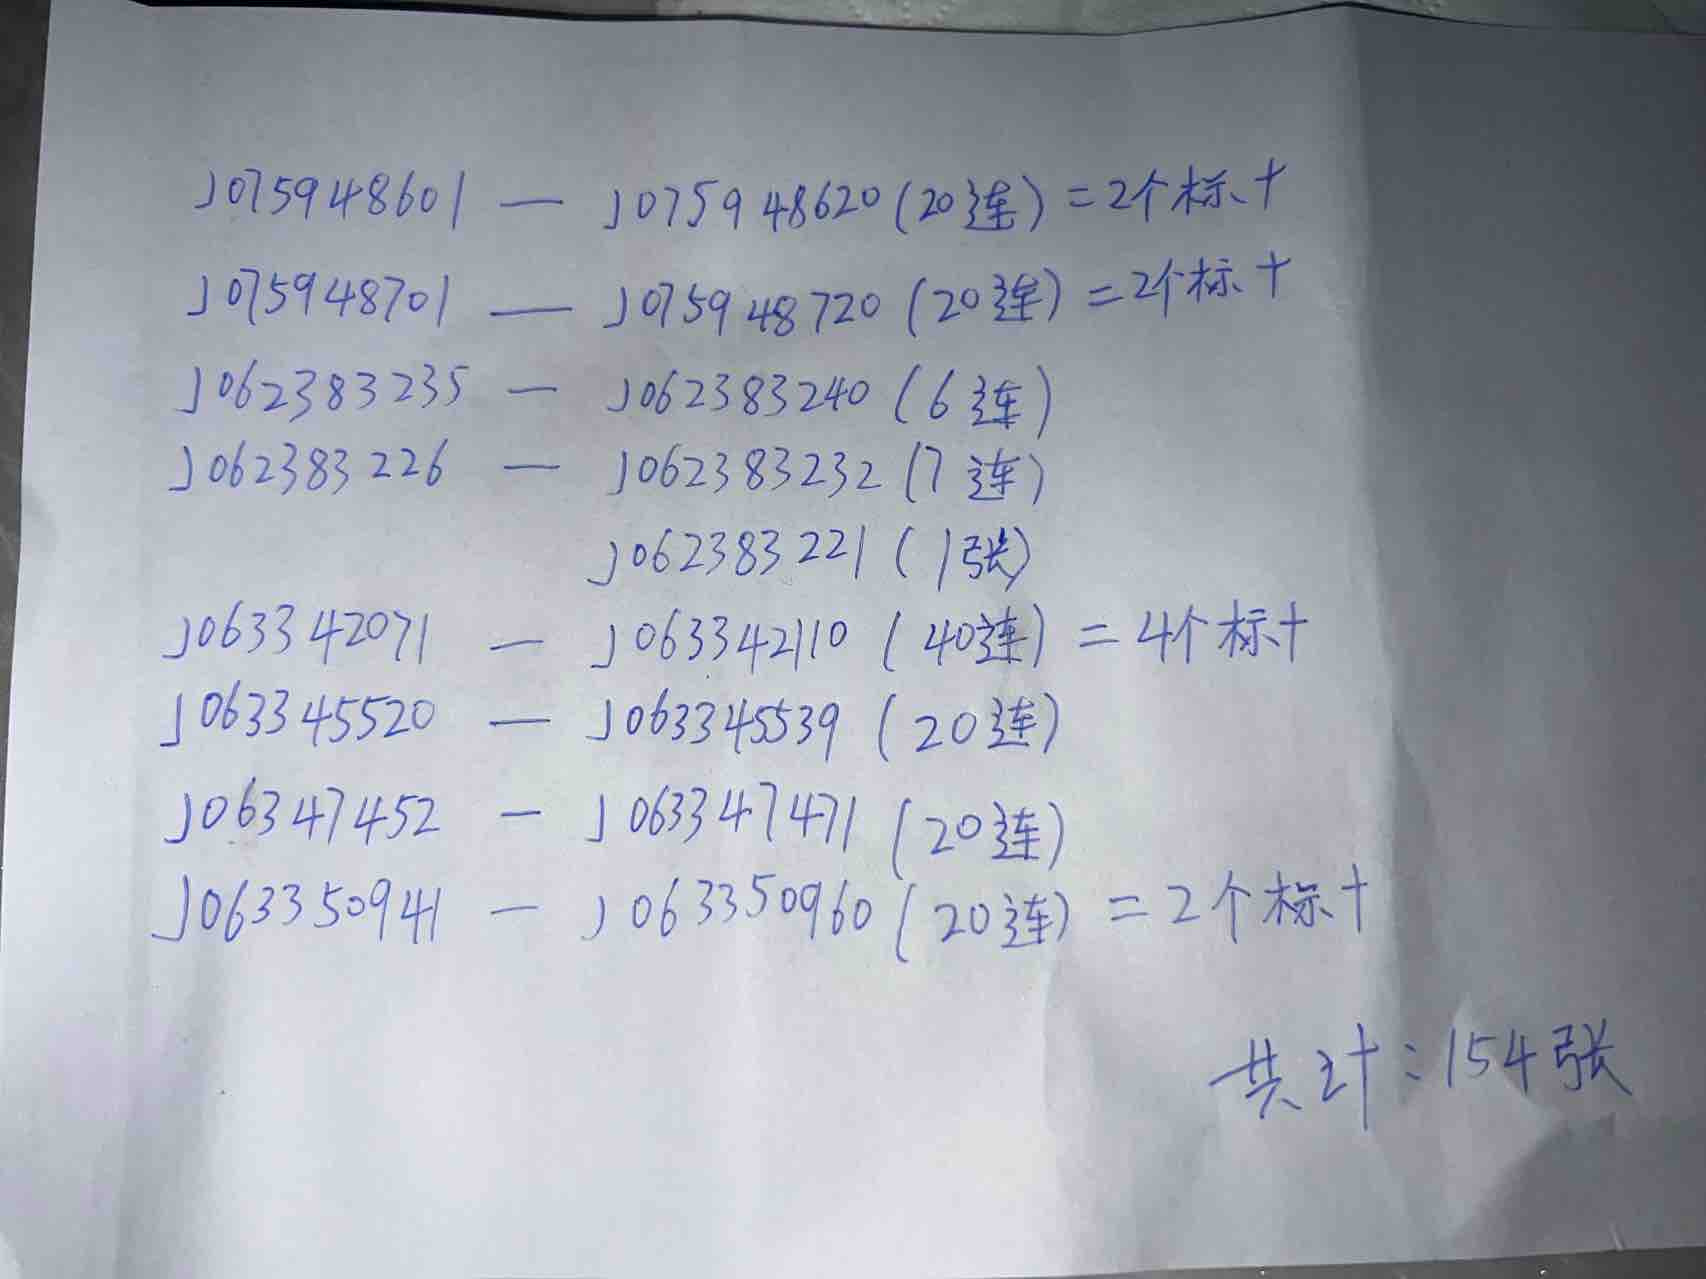 J075948601 — J075948620(20连)=2个标十
J075948701 — J075948720(20连)=2个标十
J062383235 — J062383240(6连)
J062383226 — J062383232(7连)
J062383221(1张)
J063342071 — J063342110(40连)=4个标十
J063345520 — J063345539(20连)
J06347452 — J063347471(20连)
J063350941 — J063350960(20连)=2个标十
共计:154张